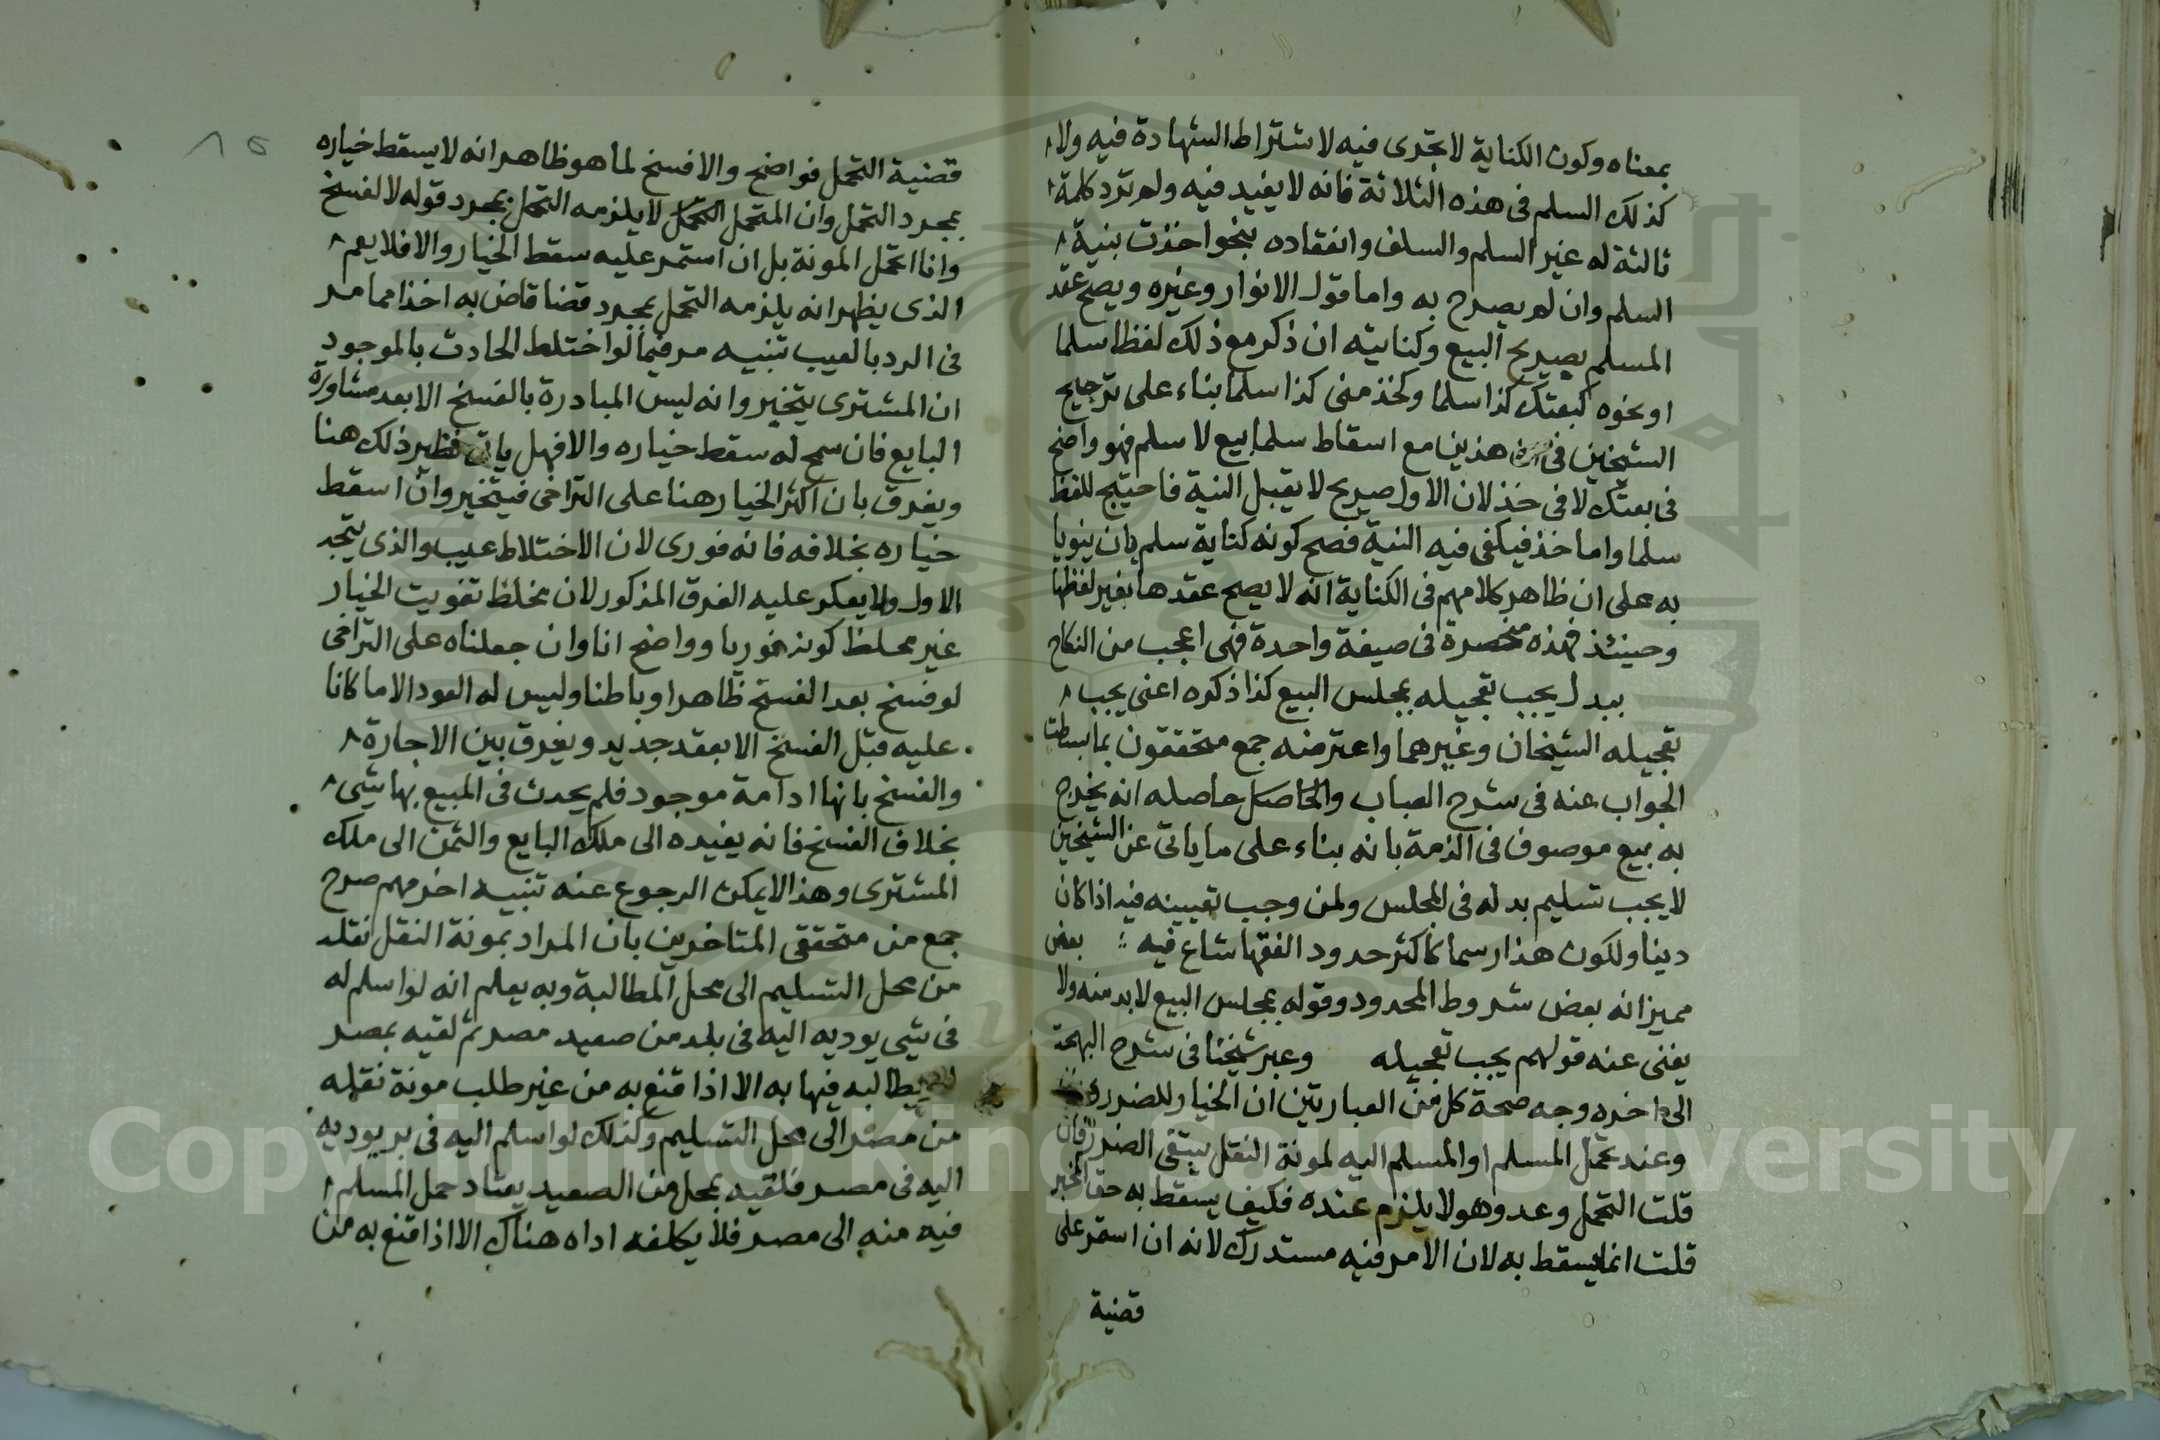 بمعناه وكون الكناية لا تجدى فيه لاشتراط الشهادة فيه ولا
كذلك السلم فى هذه الثلاثة فانه لا يفيد فيه ولم ترد كلمة
ثالثة له غير السلم والسلف وانعقاده بنحو اخذت بنية
السلم وان لم يصرح به واما قول الانوار وغيره ويصح عقد
المسلم بصريح البيع وكنايته ان ذكر مع ذلك لفظ سلما
او نحوه كبعتك كذا سلما وكخذ منى كذا سلما بناء على ترجيح
الشيخين فى هذين مع اسقاط سلما بيع لا سلم فهو واضح
فى بعتك لا فى خذ لان الاول صريح لا يقبل النية فاحتيج للفظ
سلما واما خذ فيكفى فيه النية فصح كونه كناية سلم بان ينويا
به على ان ظاهر كلامهم فى الكناية انه لا يصح عقدها بغير لفظها
وحينئذ فهذه منحصرة فى صيغة واحدة فهى اعجب من النكاح
ببدل يجب تعجيله بمجلس البيع كذا ذكروه اعنى يجب
تعجيله الشيخان وغيرهما واعترضه جمع محققون بما بسطت
الجواب عنه فى شرح العباب والحاصل حاصله انه يخرج
به بيع موصوف فى الذمة بانه بناء على ما ياتى عن الشيخين
لا يجب تسليم بدله فى المجلس ولمن وجب تعيينه فيه اذا كان
دينا ولكون هذا رسما كاكثر حدود الفقها شاع فيه بعض
مميزانه بعض شروط المحدود وقوله بمجلس البيع لا بد منه ولا
يغنى عنه قولهم يجب تعجيله وعبر شيخنا فى شرح البهجة
الى اخره وجه صحة كل من العبارتين ان الخيار للضرر
وعند تحمل المسلم او المسلم اليه لمونة النقل ينتفى الضرر فان
قلت التحمل وعد وهو لا يلزم عنده فكيف يسقط به حق الخير
قلت انما يسقط به لان الامر فيه مستدرك لانه ان استمر على
قضية
قضية التحمل فواضح والا فسخ لما هو ظاهر انه لا يسقط خياره
بمجرد التحمل وان المتحمل لا يلزمه التحمل بمجرد قوله لا لفسخ
وانا اتحمل المونة بل ان استمر عليه سقط الخيار والا فلا يعم
الذى يظهر انه يلزمه التحمل بمجرد قضا قاض به اخذا مما مر
فى الرد بالعيب تنبيه مر فيما لو اختلط الحادث بالموجود
ان المشترى يتخير وانه ليس المبادرة بالفسخ الا بعد مشاورة
البايع فان سمح له سقط خياره والا فهل ياتى نظير ذلك هنا
ويفرق بان اكثر الخيار هنا على التراخى فيتخير وان اسقط
خياره بخلافه فانه فورى لان الاختلاط عيب والذى يتجه
الاول ولا يعكر عليه الفرق المذكور لان مخلظ تفويت الخيار
غير محلظ كونه فوريا وواضح انا وان جعلناه على التراخى
لو فسخ بعد الفسخ ظاهرا وباطنا وليس له العود الا ما كانا
عليه قبل الفسخ الا بعقد جديد ويفرق بين الاجارة
والفسخ بانها ادامة موجود فلم يحدث فى المبيع بها شى
بخلاف الفسخ فانه يفيده الى ملك البايع والثمن الى ملك
المشترى وهذا لا يمكن الرجوع عنه تنبيه اخر مهم صرح
جمع من محققى المتاخرين بان المراد بمونة النقل نقله
من محل التسليم الى محل المطالبة وبه يعلم انه لو اسلم له
فى شى يوديه اليه فى بلد من صعيد مصر ثم لقيه بمصر
يطالبه فيها به الا اذا قنع به من غير طلب مونة نقله
من مصر الى محل التسليم وكذلك لو اسلم اليه فى بر يوديه
اليه فى مصر فلقيه بمحل من الصعيد يعتاد حمل المسلم
فيه منه الى مصر فلا يكلفه اداه هناك الا اذا قنع به من
Copyright © King Saud University